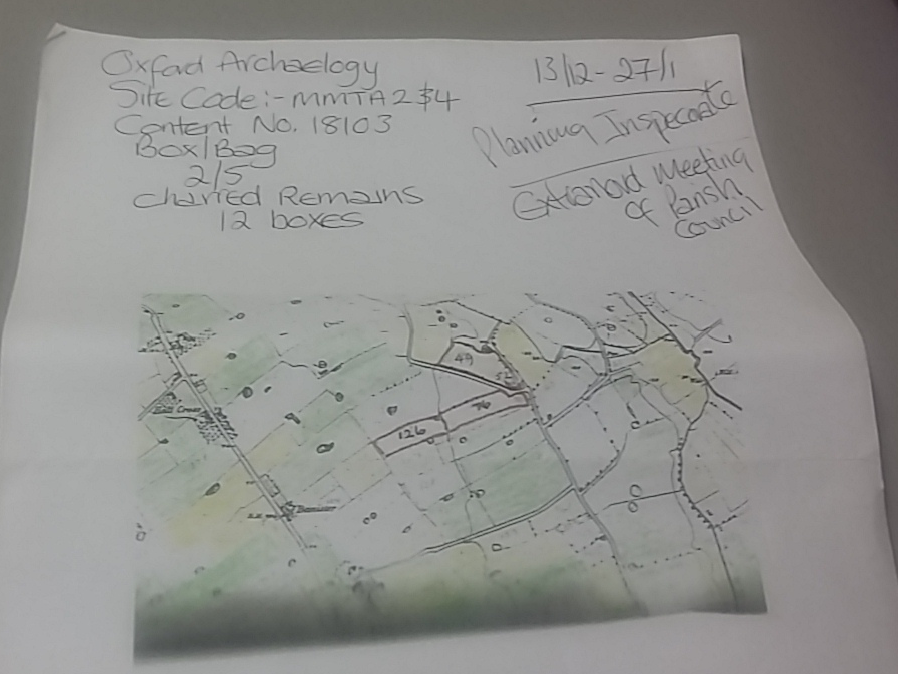 Oxford Archaelogy
Site Code:- MMTA2 $4
Content No. 18103
Box/Bag
2/5
Charred Remains
12 boxes
13/12 - 27/1
Planning Inspecorate
Extranord Meeting
of Parish
Council
49
76
126